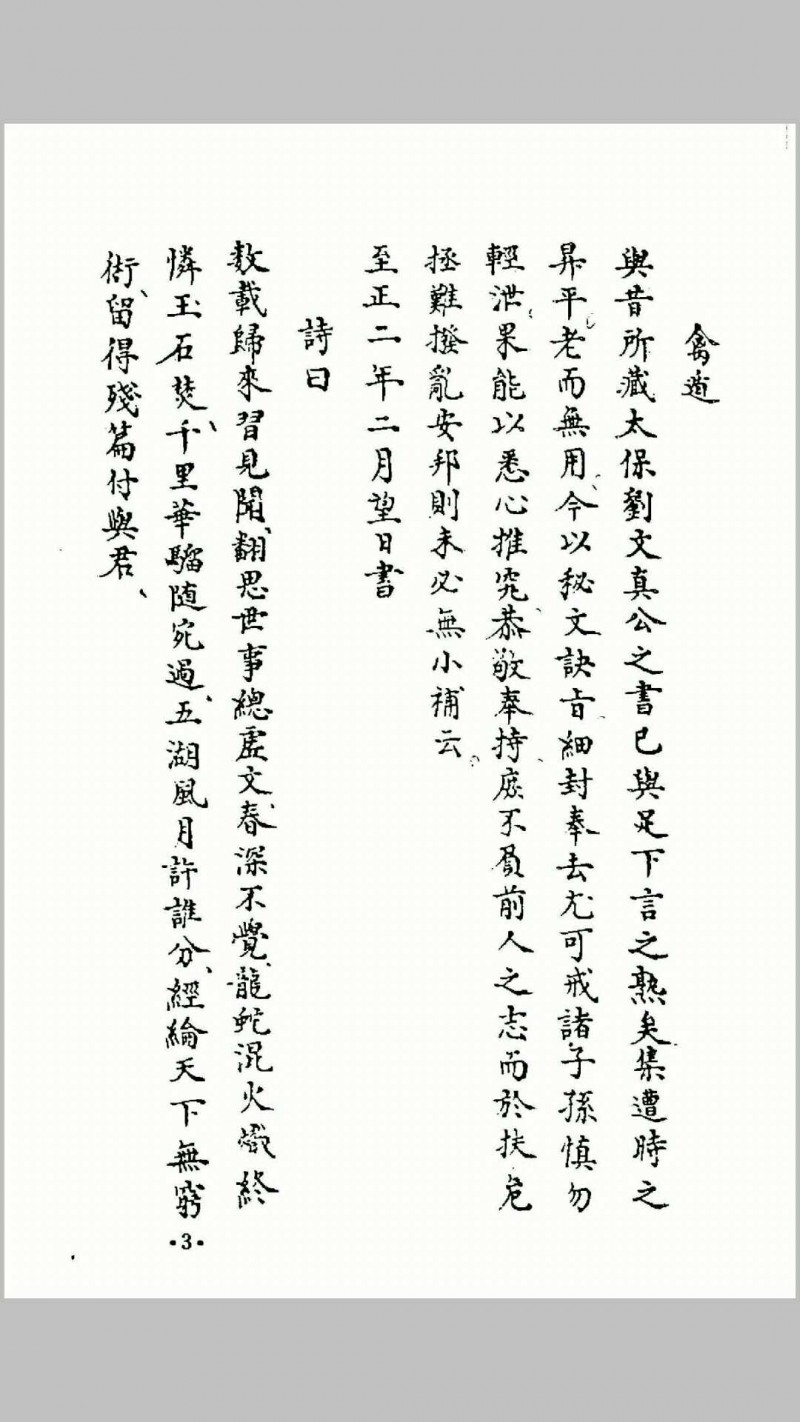 禽遁
與昔所藏太保劉文真公之書已與足下言之熟矣集遭時之
昇平老而無用今以秘文訣旨細封奉去尤可戒諸子孫慎勿
輕泄果能以悉心推究恭敬奉持庶不負前人之志而於扶危
拯難撥亂安邦則未必無小補云
至正二年二月望日書
詩曰
数載歸來習見聞、翻思世事總虛文、春深不覺龍蛇混、火熾終
憐玉石焚、千里華騮隨宛過、五湖風月許誰分、經綸天下無窮
術、留得殘篇付與君、
·3·